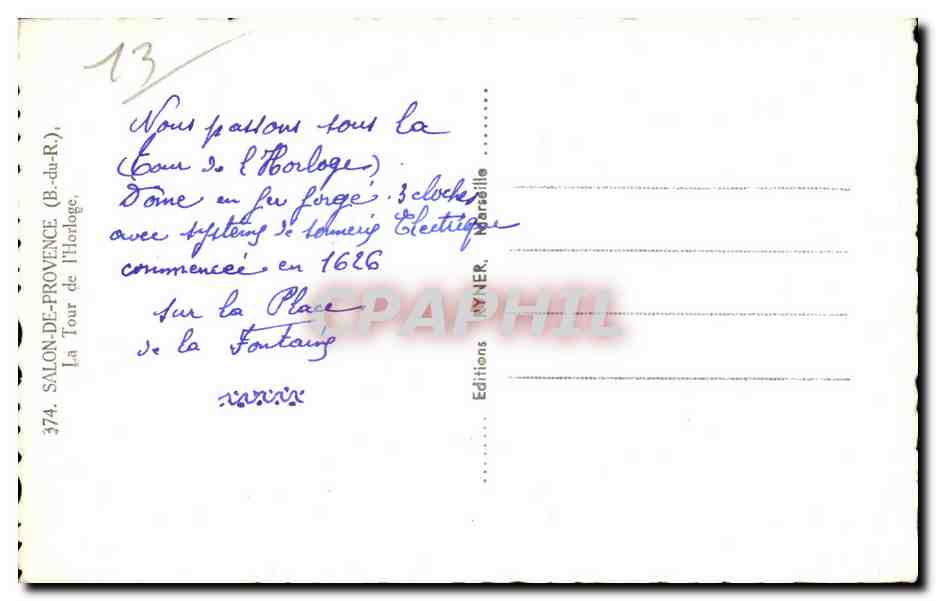 13
374. SALON-DE-PROVENCE (B.-du-R.).
La Tour de l'Horloge.
Nous passons sous la
(Tour de l'Horloge)
Dôme en fer forgé. 3 cloches
avec système de sonnerie Electrique
commencée en 1626
sur la Place
de la Fontaine
Editions RYNER, Marseille
CPAPHIL